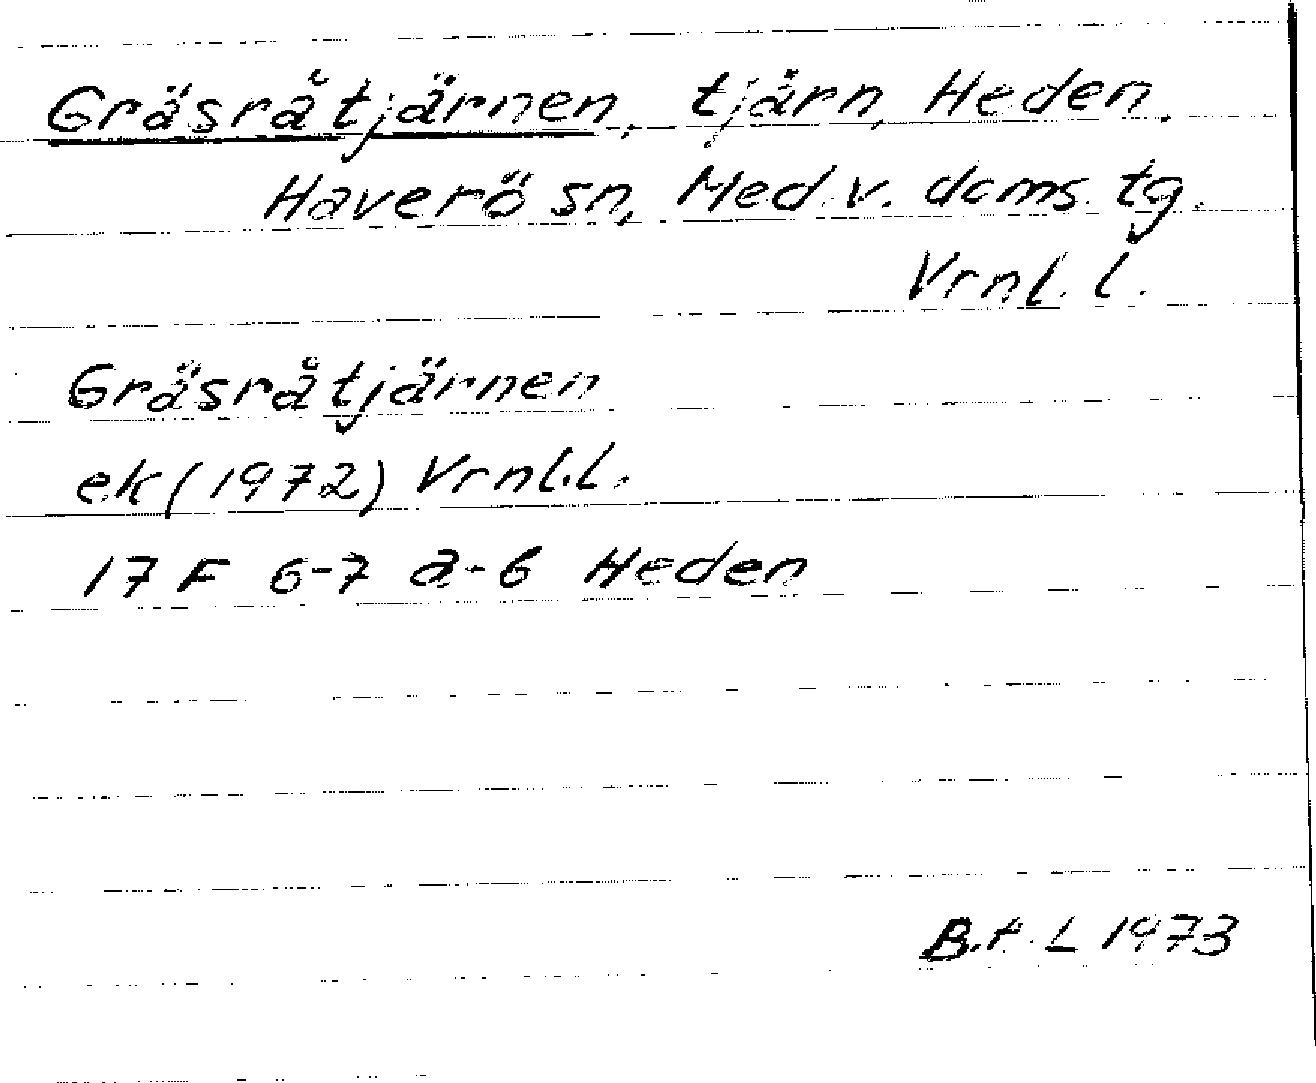 Gräsråtjärnen, tjärn, Heden,
Haverö sn, Med. v. doms. tg.
Vrnl. l.
Gräsråtjärnen
ek (1972) Vrnl.l.
17 F 6-7 a-b Heden
B.t. L 1973